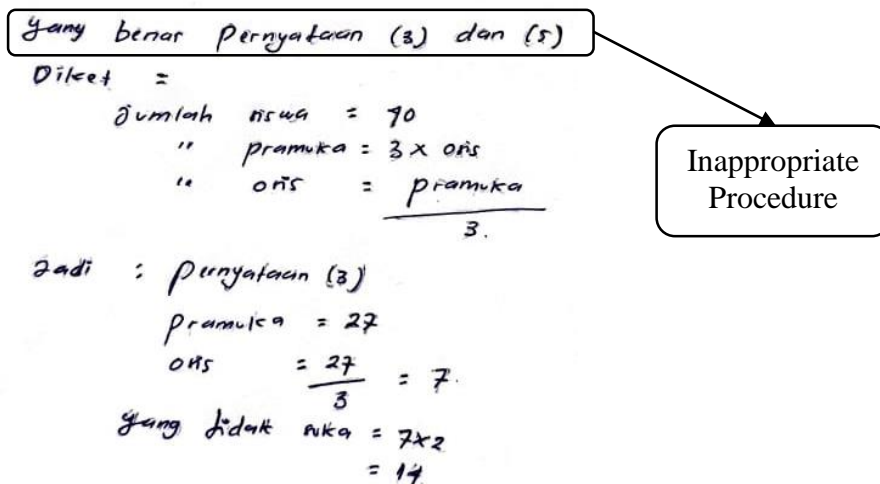 yang benar pernyataan (3) dan (5)
Diket =
jumlah siswa = 40
" pramuka = 3 x osis
" osis = pramuka
3.
Jadi : pernyataan (3)
pramuka = 27
osis = 27
3
= 7.
yang tidak suka = 7x2
= 14
Inappropriate
Procedure